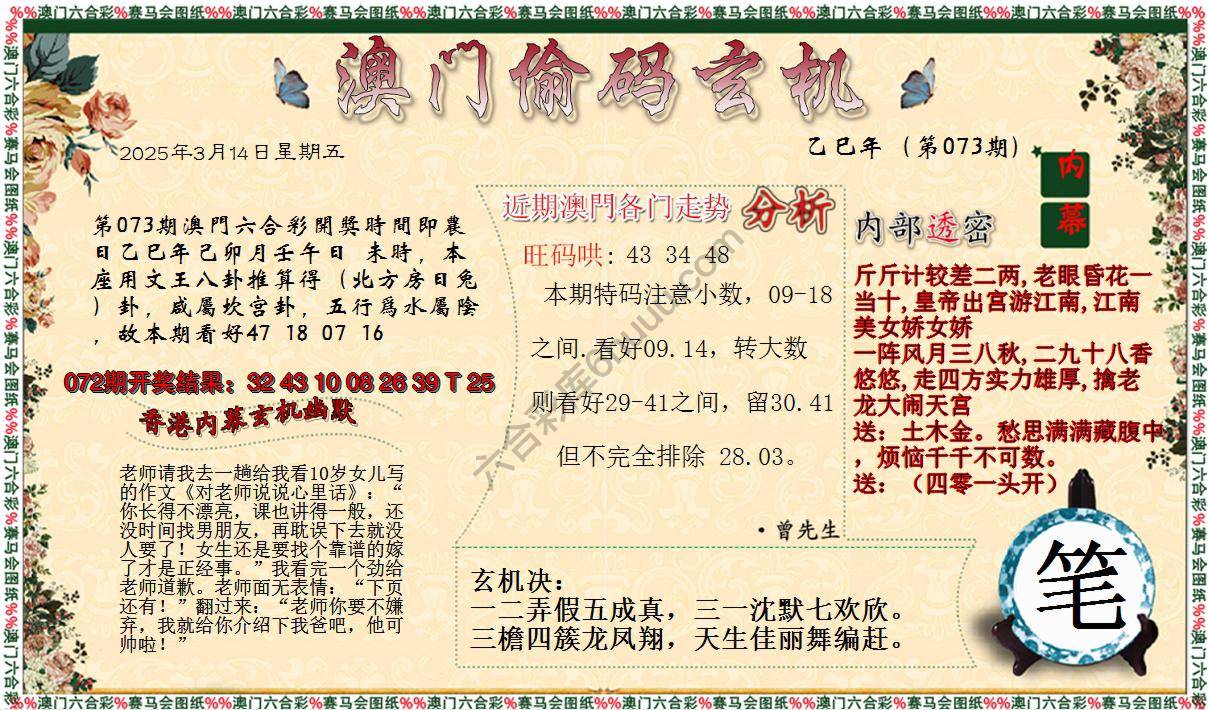 %%澳门六合彩%赛马会图纸%%澳门六合彩%赛马会图纸%%澳门六合彩%赛马会图纸%%澳门六合彩%赛马会图纸%%澳门六合彩%赛马会图纸%%澳门六合彩%赛马会图纸%%
澳门偷码玄机
2025年3月14日星期五
乙巳年（第073期）
内
幕
第073期澳門六合彩開獎時間即農
日乙巳年己卯月壬午日 未時，本
座用文王八卦推算得（北方房日兔
）卦，咸屬坎宫卦，五行爲水屬陰
，故本期看好47 18 07 16
072期开奖结果：32 43 10 08 26 39 T 25
香港内幕玄机幽默
老师请我去一趟给我看10岁女儿写
的作文《对老师说说心里话》：“
你长得不漂亮，课也讲得一般，还
没时间找男朋友，再耽误下去就没
人要了！女生还是要找个靠谱的嫁
了才是正经事。”我看完一个劲给
老师道歉。老师面无表情：“下页
还有！”翻过来：“老师你要不嫌
弃，我就给你介绍下我爸吧，他可
帅啦！”
近期澳門各门走势 分析
旺码哄：43 34 48
本期特码注意小数，09-18
之间.看好09.14，转大数
则看好29-41之间，留30.41
但不完全排除 28.03。
·曾先生
六合彩库6huuu.com
玄机决：
一二弄假五成真，三一沈默七欢欣。
三檐四簇龙凤翔，天生佳丽舞编赶。
内部透密
斤斤计较差二两,老眼昏花一
当十,皇帝出宫游江南,江南
美女娇女娇
一阵风月三八秋,二九十八香
悠悠,走四方实力雄厚,擒老
龙大闹天宫
送：土木金。愁思满满藏腹中
，烦恼千千不可数。
送：（四零一头开）
笔
%%澳门六合彩%赛马会图纸%%澳门六合彩%赛马会图纸%%澳门六合彩%赛马会图纸%%澳门六合彩%赛马会图纸%%澳门六合彩%赛马会图纸%%澳门六合彩%赛马会图纸%%